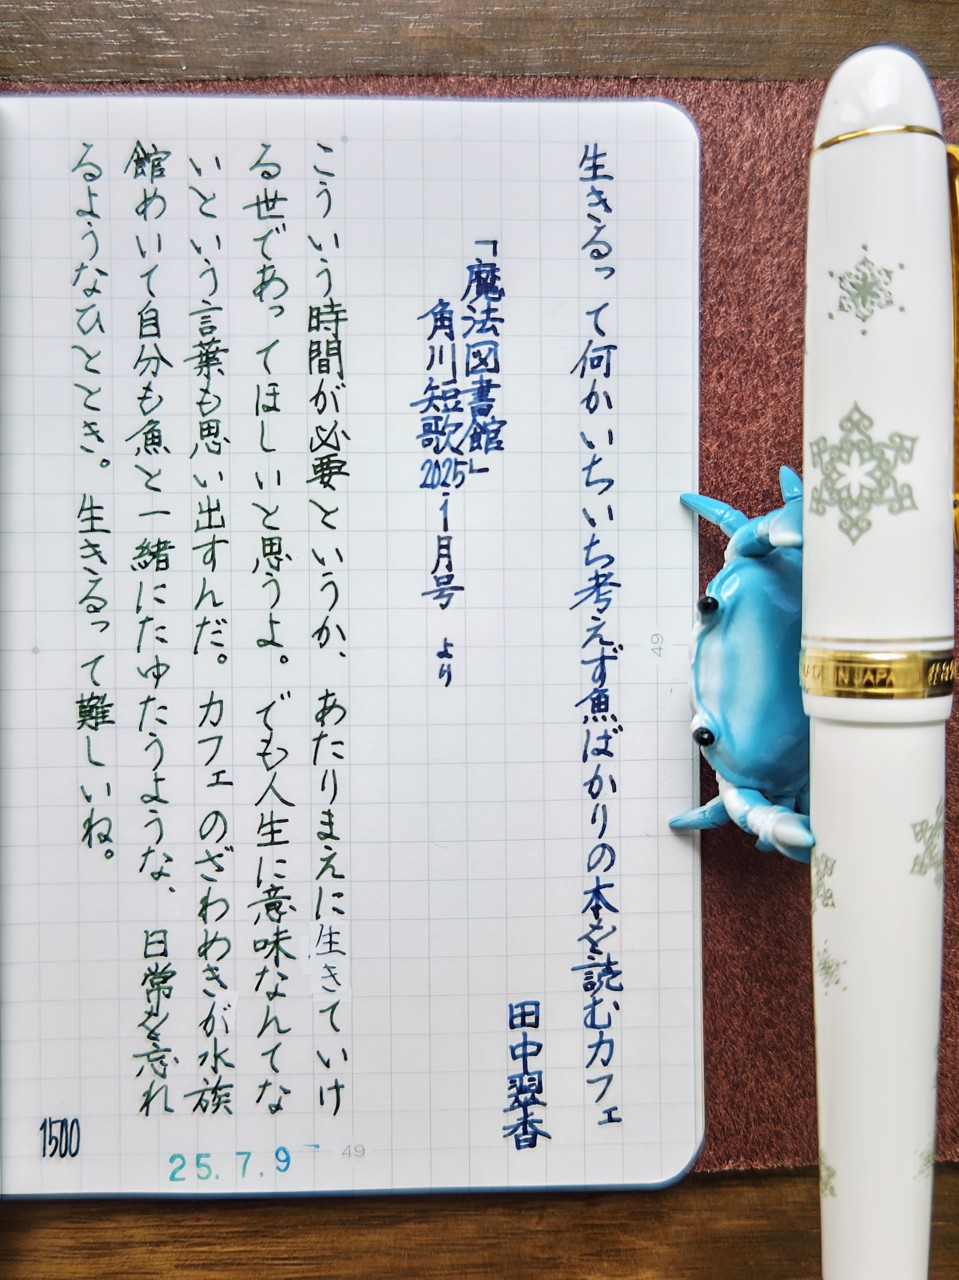 生きるって何かいちいち考えず魚ばかりの本を読むカフェ
田中翠香
「魔法図書館」
角川短歌2025-1月号 より
こういう時間が必要というか、あたりまえに生きていけ
る世であってほしいと思うよ。でも人生に意味なんてな
いという言葉も思い出すんだ。カフェのざわめきが水族
館めいて自分も魚と一緒にたゆたうような、日常を忘れ
るようなひととき。生きるって難しいね。
1500
25.7.9
49
49
MADE IN JAPAN